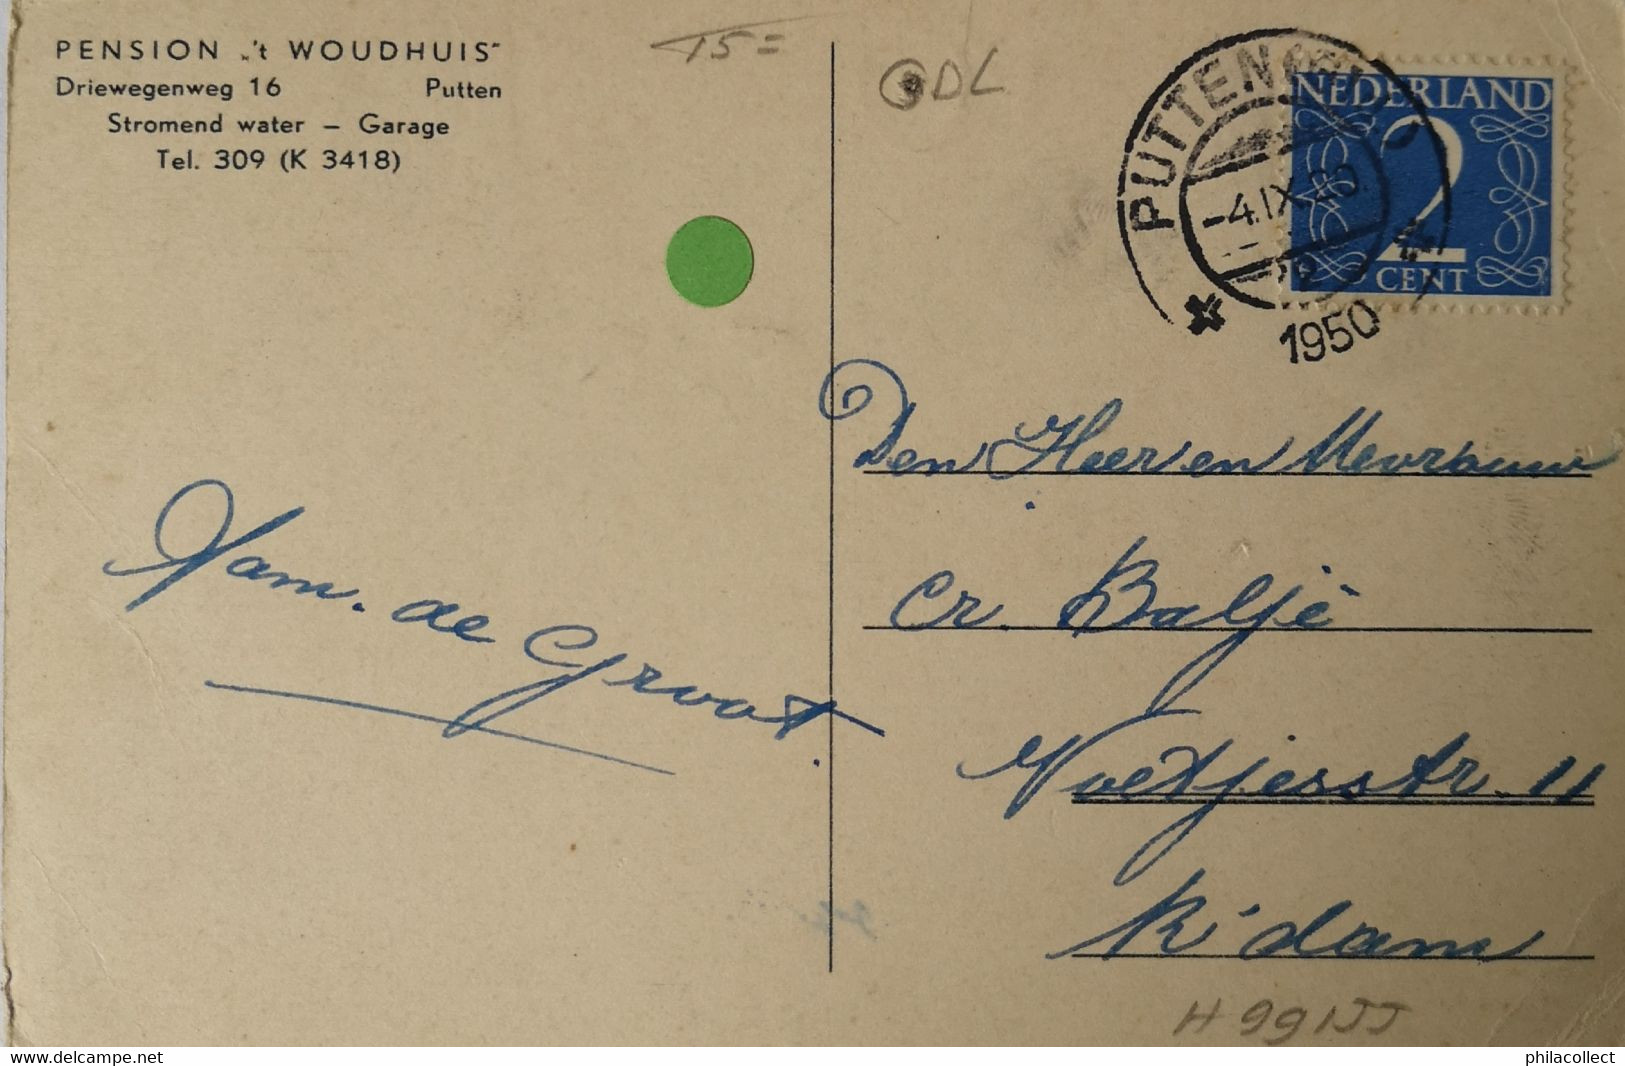 PENSION „'t WOUDHUIS"
Driewegenweg 16 Putten
Stromend water – Garage
Tel. 309 (K 3418)
15=
DL
PUTTEN
-4.IX.20.
1950
NEDERLAND
2
CENT
Den Heer en Mevrouw
Cr. Baljé
Voetjesstr. 11
R'dam
Fam. de Groot.
H99155
philacollect